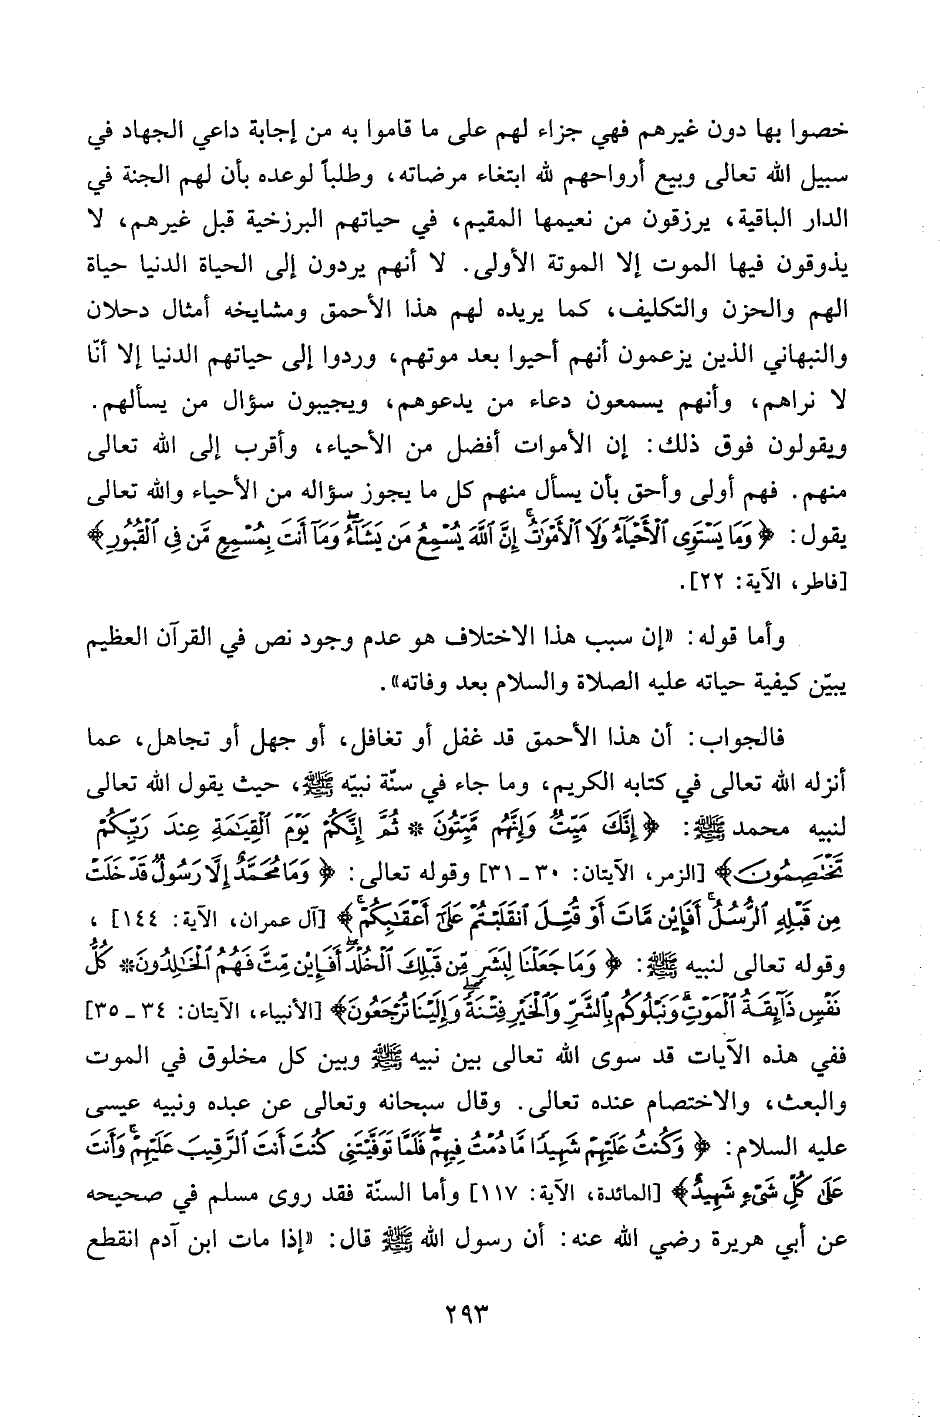 خصوا بها دون غيرهم فهي جزاء لهم على ما قاموا به من إجابة داعي الجهاد في
سبيل الله تعالى وبيع أرواحهم لله ابتغاء مرضاته، وطلباً لوعده بأن لهم الجنة في
الدار الباقية، يرزقون من نعيمها المقيم، في حياتهم البرزخية قبل غيرهم، لا
يذوقون فيها الموت إلا الموتة الأولى. لا أنهم يردون إلى الحياة الدنيا حياة
الهم والحزن والتكليف، كما يريده لهم هذا الأحمق ومشايخه أمثال دحلان
والنبهاني الذين يزعمون أنهم أحيوا بعد موتهم، وردوا إلى حياتهم الدنيا إلا أنّا
لا نراهم، وأنهم يسمعون دعاء من يدعوهم، ويجيبون سؤال من يسألهم.
ويقولون فوق ذلك: إن الأموات أفضل من الأحياء، وأقرب إلى الله تعالى
منهم. فهم أولى وأحق بأن يسأل منهم كل ما يجوز سؤاله من الأحياء والله تعالى
يقول: ﴿وَمَا يَسْتَوِى ٱلْأَحْيَآءُ وَلَا ٱلْأَمْوَٰتُ ۚ إِنَّ ٱللَّهَ يُسْمِعُ مَن يَشَآءُ ۖ وَمَآ أَنتَ بِمُسْمِعٍ مَّن فِى ٱلْقُبُورِ﴾
[فاطر، الآية: ٢٢].
وأما قوله: «إن سبب هذا الاختلاف هو عدم وجود نص في القرآن العظيم
يبيّن كيفية حياته عليه الصلاة والسلام بعد وفاته».
فالجواب: أن هذا الأحمق قد غفل أو تغافل، أو جهل أو تجاهل، عما
أنزله الله تعالى في كتابه الكريم، وما جاء في سنّة نبيّه ﷺ، حيث يقول الله تعالى
لنبيه محمد ﷺ: ﴿إِنَّكَ مَيِّتٌ وَإِنَّهُم مَّيِّتُونَ * ثُمَّ إِنَّكُمْ يَوْمَ ٱلْقِيَٰمَةِ عِندَ رَبِّكُمْ
تَخْتَصِمُونَ﴾ [الزمر، الآيتان: ٣٠ ـ ٣١] وقوله تعالى: ﴿وَمَا مُحَمَّدٌ إِلَّا رَسُولٌ قَدْ خَلَتْ
مِن قَبْلِهِ ٱلرُّسُلُ ۚ أَفَإِيْن مَّاتَ أَوْ قُتِلَ ٱنقَلَبْتُمْ عَلَىٰٓ أَعْقَٰبِكُمْ ۚ﴾ [آل عمران، الآية: ١٤٤]،
وقوله تعالى لنبيه ﷺ: ﴿وَمَا جَعَلْنَا لِبَشَرٍ مِّن قَبْلِكَ ٱلْخُلْدَ ۖ أَفَإِيْن مِّتَّ فَهُمُ ٱلْخَٰلِدُونَ * كُلُّ
نَفْسٍ ذَآئِقَةُ ٱلْمَوْتِ ۗ وَنَبْلُوكُم بِٱلشَّرِّ وَٱلْخَيْرِ فِتْنَةً ۖ وَإِلَيْنَا تُرْجَعُونَ﴾ [الأنبياء، الآيتان: ٣٤ ـ ٣٥]
ففي هذه الآيات قد سوى الله تعالى بين نبيه ﷺ وبين كل مخلوق في الموت
والبعث، والاختصام عنده تعالى. وقال سبحانه وتعالى عن عبده ونبيه عيسى
عليه السلام: ﴿وَكُنتُ عَلَيْهِمْ شَهِيدًا مَّا دُمْتُ فِيهِمْ ۖ فَلَمَّا تَوَفَّيْتَنِى كُنتَ أَنتَ ٱلرَّقِيبَ عَلَيْهِمْ ۚ وَأَنتَ
عَلَىٰ كُلِّ شَىْءٍ شَهِيدٌ﴾ [المائدة، الآية: ١١٧] وأما السنّة فقد روى مسلم في صحيحه
عن أبي هريرة رضي الله عنه: أن رسول الله ﷺ قال: «إذا مات ابن آدم انقطع
٢٩٣